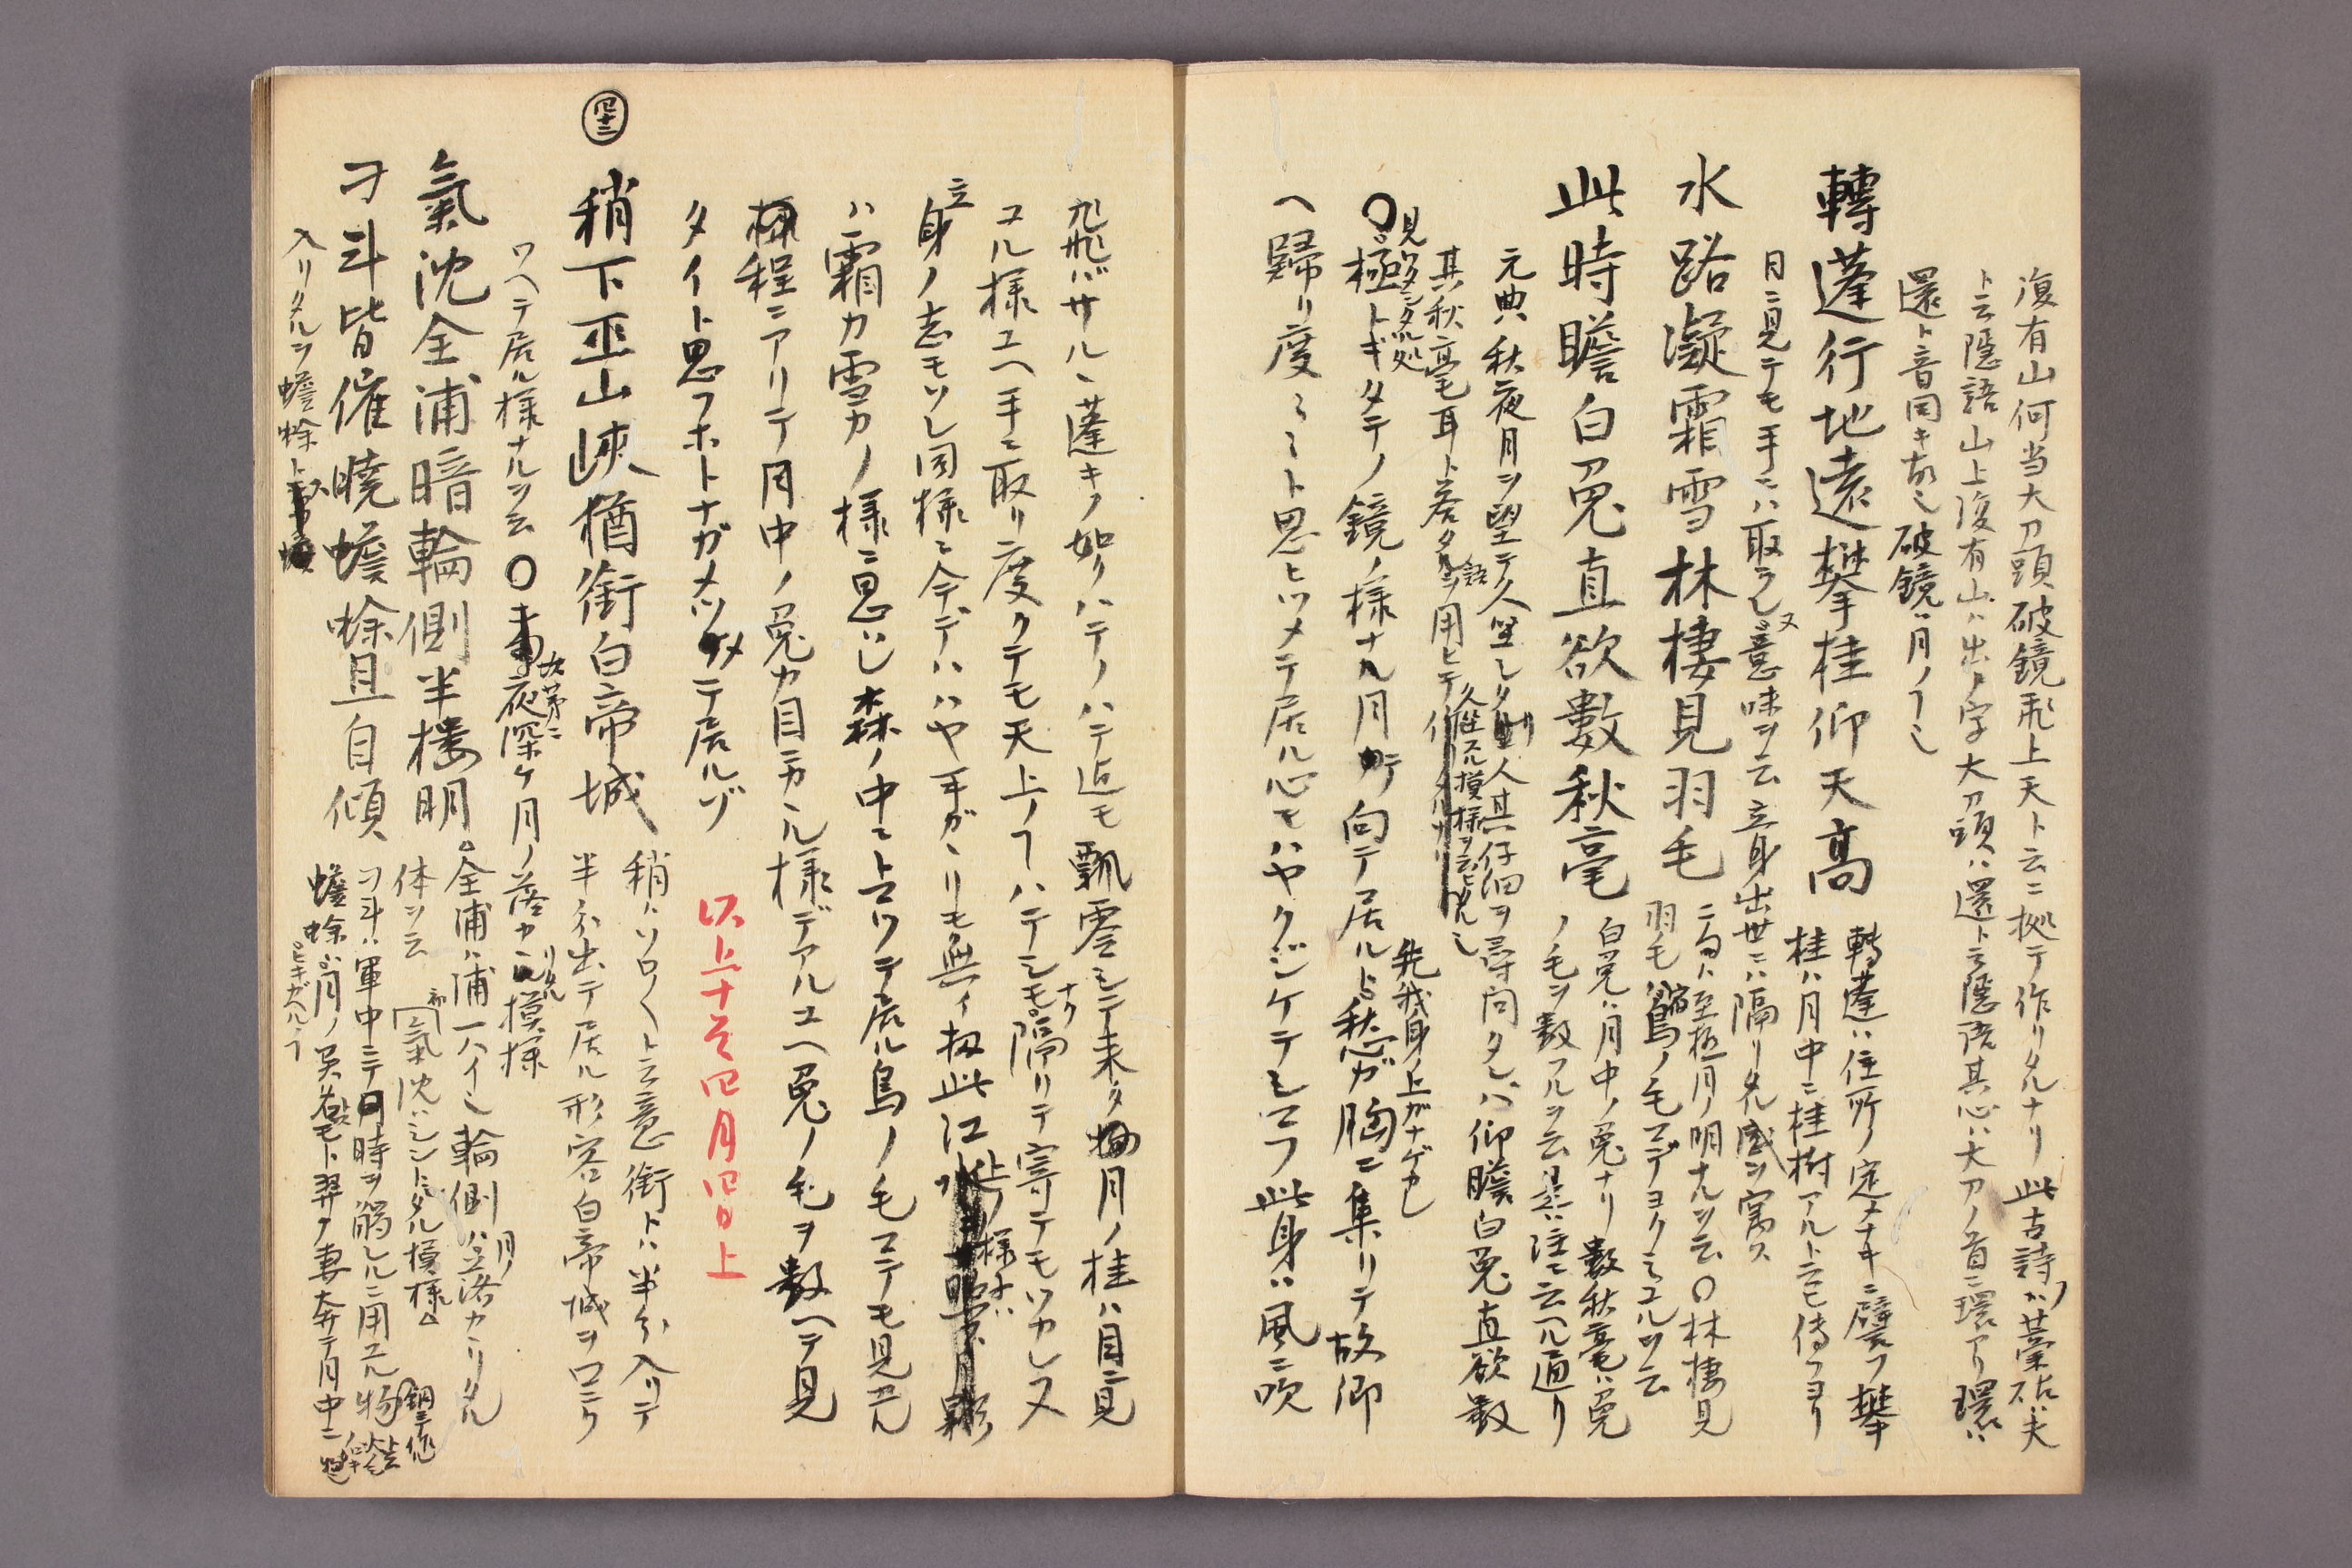 復有山何当大刀頭破鏡飛上天ト云ニ拠テ作リタルナリ此古詩ハ藁砧ハ夫
ト云隠語山上復有山ハ出ノ字大刀頭ハ還ト云隠語其心ハ大刀ノ首ニ環アリ環ハ
還ト音同キ故ニ破鏡ハ月ノ
轉蓬行地遠攀桂仰天高
轉蓬ハ住所ノ定メナキニ譬フ攀
桂ハ月中ニ桂樹アルト云モ傳フヨリ
目ニ見テモ手ニハ取ラレヌ意味ヲ云立身出世ニハ隔リタル感ヲ寓ス
水路凝霜雪林棲見羽毛
二句ハ至極月ノ明ナルヲ云〇林棲見
羽毛ハ宿鳥ノ毛マデヨクミユルヲ云
此時瞻白兎直欲數秋毫
白兎ハ月中ノ兎ナリ數秋毫ハ兎
ノ毛ヲ数フルヲ云是ハ注ニ云ヘル通リ
元典ハ秋夜月ヲ望テ久坐シタリ人其仔細ヲ尋問タレハ仰瞻白兎直欲数
其秋毫耳ト答タル語ヲ用ヒテ
久坐スル模様ヲ云
〇極トギタテノ鏡ノ様ナル月ニ向テ居ルト愁ガ胸ニ集リテ故郷
先我身ノ上ガナゲカレ
ヘ歸リ度ト思ヒツメテ居ル心モハヤクジケテシマフ此身ハ風ニ吹
飛バサルヽ蓬キノ如クハテノハテ迄モ飄零シテ来タ月ノ桂ハ目ニ見
ユル様ユヘ手ニ取リ度クテモ天上ノハテシモナク隔リテ寄テモツカレヌ
立身ノ志モソレ同様ニ今デハハヤ手ガヽリモ無イ扨此江上ノ様子ハ
ハ霜カ雪カノ様ニ思ハレ森ノ中ニトマツテ居ル鳥ノ毛マテモ見エル
程ニアリテ月中ノ兎カ目ニカヽル様デアルユヘ兎ノ毛ヲ數ヘテ見
タイト思フホトナガメツメテ居ルゾ
以上十七四月四日上
四十三
稍下巫山峡猶銜白帝城
稍ハソロ〱ト云意銜トハ半分入リテ
半分出テ居ル形容白帝城ヲ口ニク
ワヘテ居ル様ナルヲ云〇次第ニ夜深ケ月ノ落カヽリタル模様
氣沈全浦暗輪側半樓明
全浦ハ浦一ハイ也輪側ハ月ノ落カヽリタル
体ヲ云氣沈ハシントシタル模様
刁斗皆催曉蟾蜍且自傾
刁斗ハ軍中ニテ時ヲ觸レルニ用ユル物銅ニテ作
蟾蜍ハ月ノ異名モト羿ノ妻奔テ月中ニ
ヒキガヘル
入リタルヲ蟾蜍ト